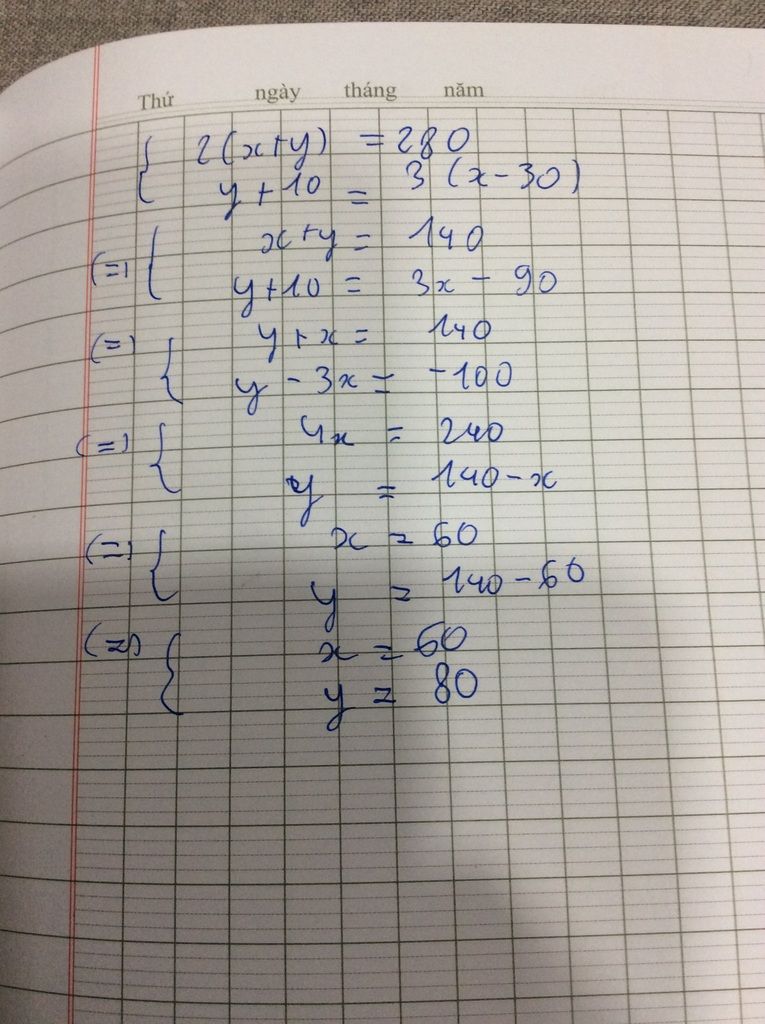 Thứ ngày tháng năm
{ 2(x+y) = 280
y + 10 = 3 (x - 30)
(=) { x + y = 140
y + 10 = 3x - 90
(=) { y + x = 140
y - 3x = -100
(=) { 4x = 240
y = 140 - x
(=) { x = 60
y = 140 - 60
(=) { x = 60
y = 80